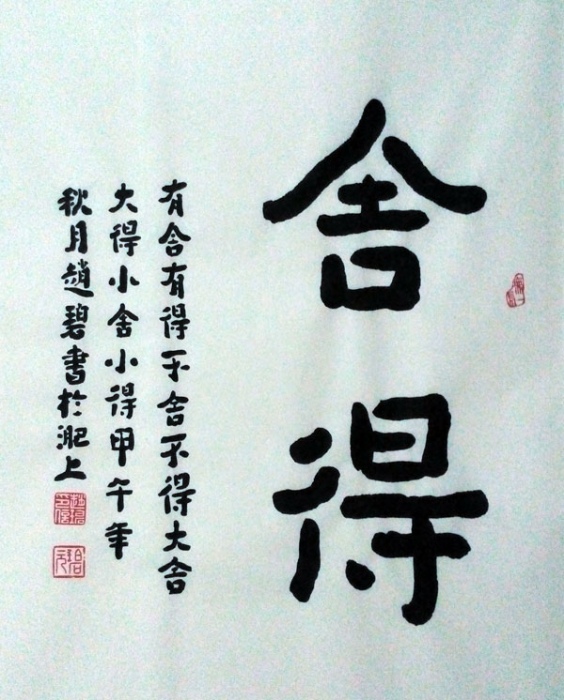 舍得
有舍有得不舍不得大舍
大得小舍小得甲午年
秋月趙碧書於淝上